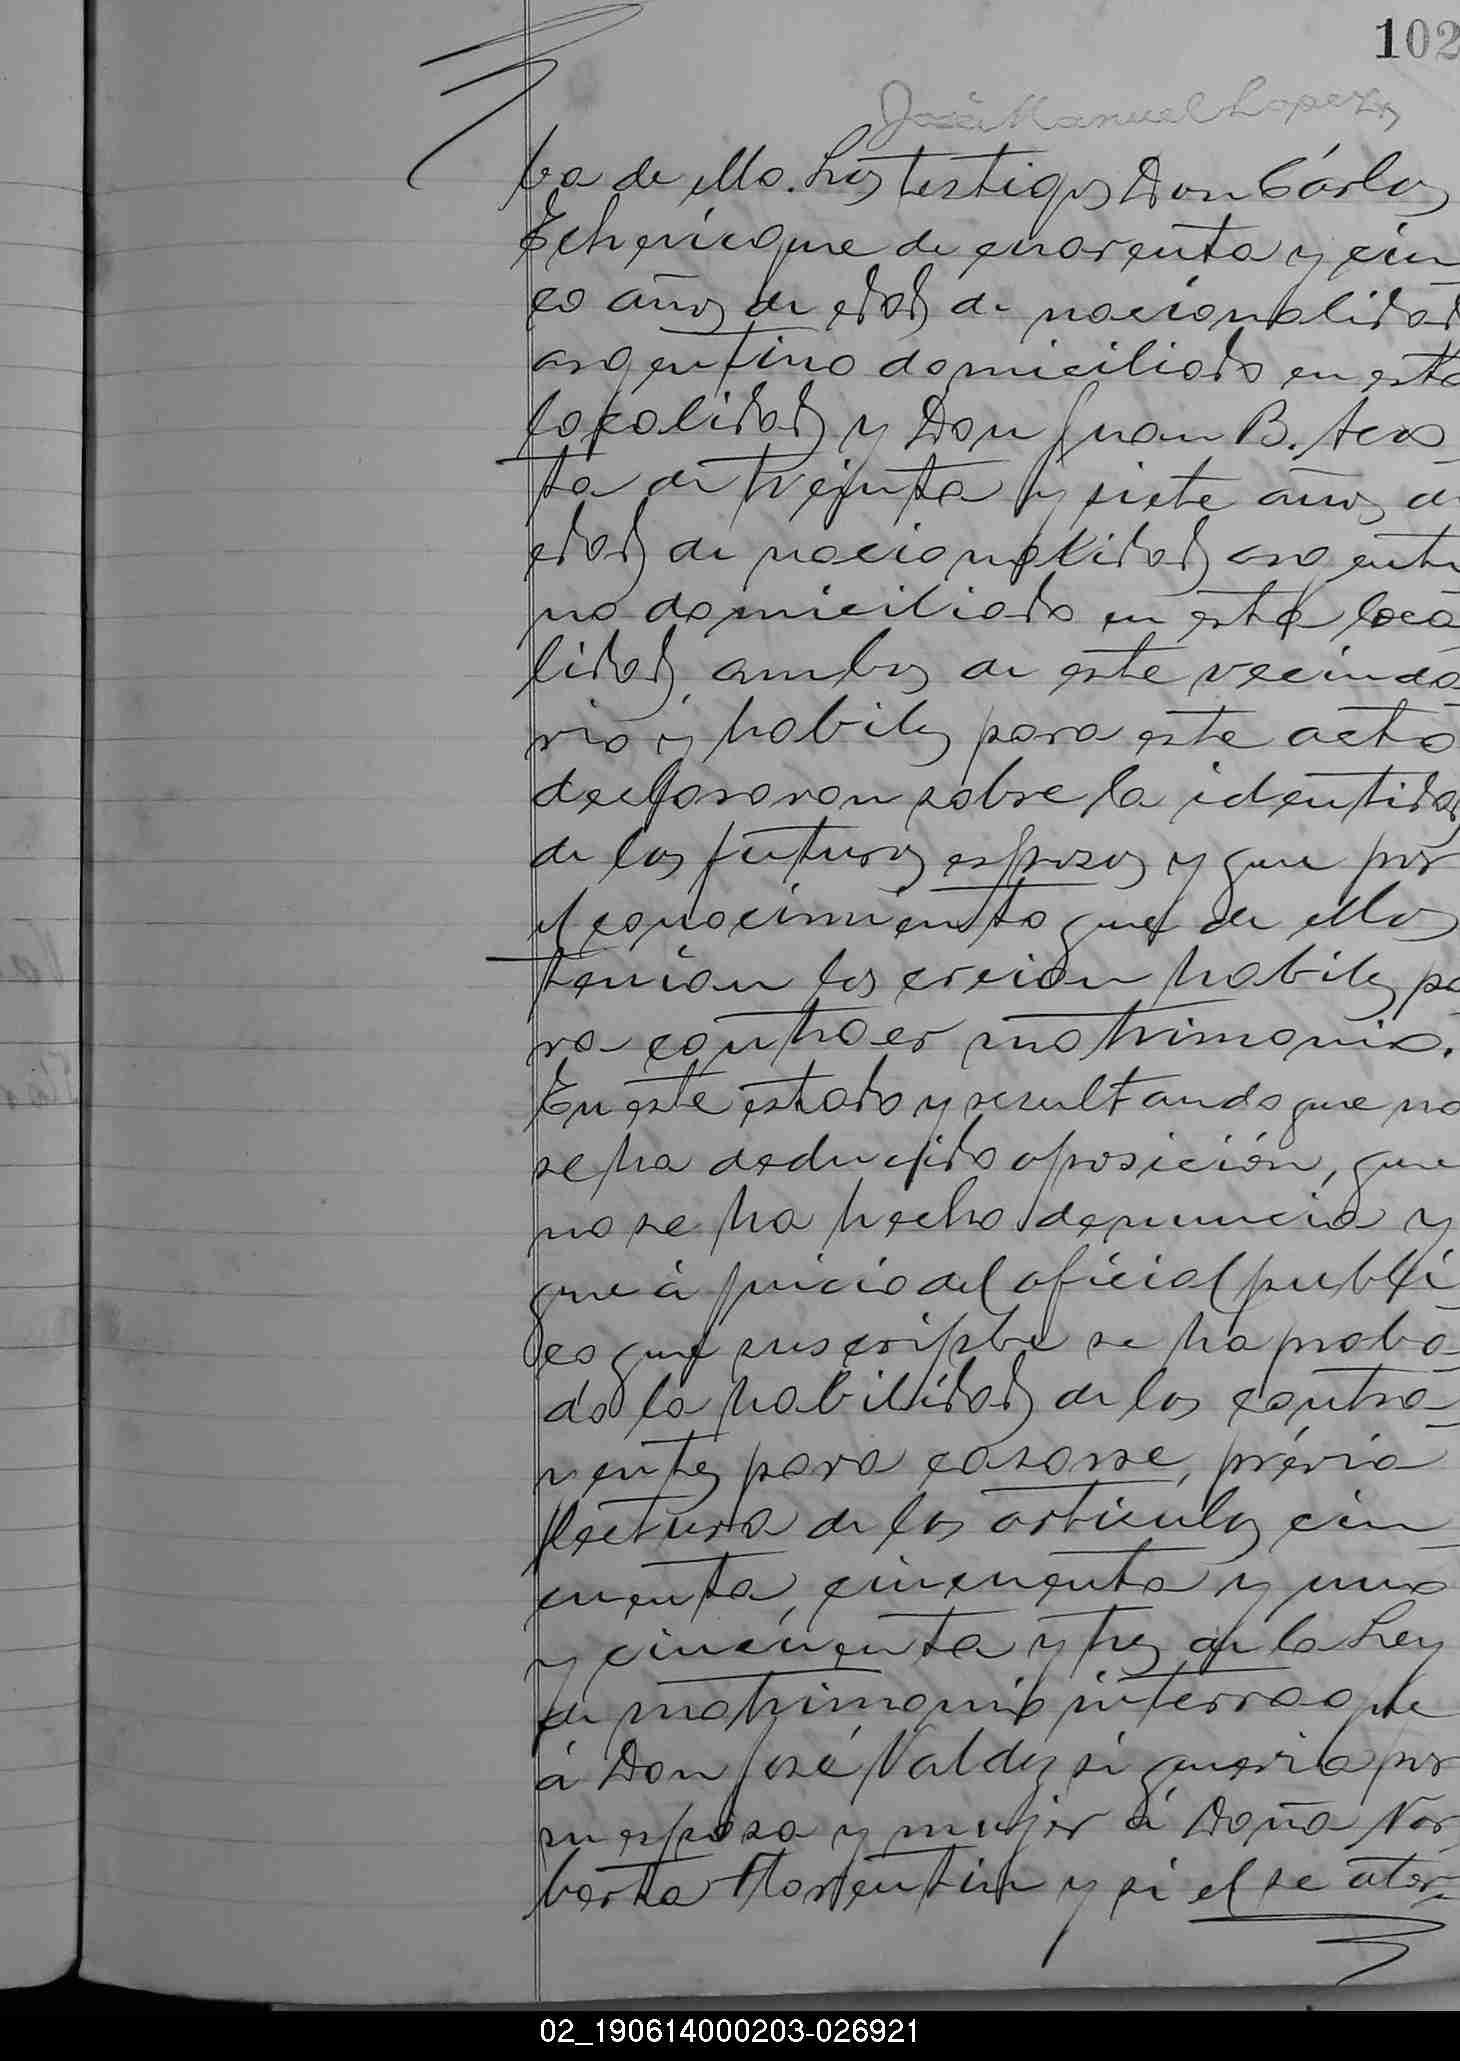 102
José Manuel Lopez
ba de ello. Los testigos Don Cárlos
Echenicque de cuarenta y cin
co años de edad de nacionalidad
argentino domiciliado en esta
localidad y Don Juan B. Acos
ta de treinta y siete años de
edad de nacionalidad argenti
no domiciliado en esta loca
lidad, ambos de este vecinda
rio y habiles para este acto
declararon sobre la identidad
de los futuros esposos y que por
el conocimiento que de ellos
tenian los creian habiles pa
ra contraer matrimonio.
En este estado y resultando que no
se ha deducido oposición, que
no se ha hecho denuncia y
que á juicio del oficial públi
co que suscripbe se ha proba
do la habilidad de los contra
yentes para casarse, prévia
lectura de los articulos cin
cuenta, cincuenta y uno
y cincuenta y tres de la Ley
de matrimonio interrogue
á Don José Valdez si queria por
su esposa y mujer á Doña Nor
berta Florentin y si el se ator
02_190614000203-026921